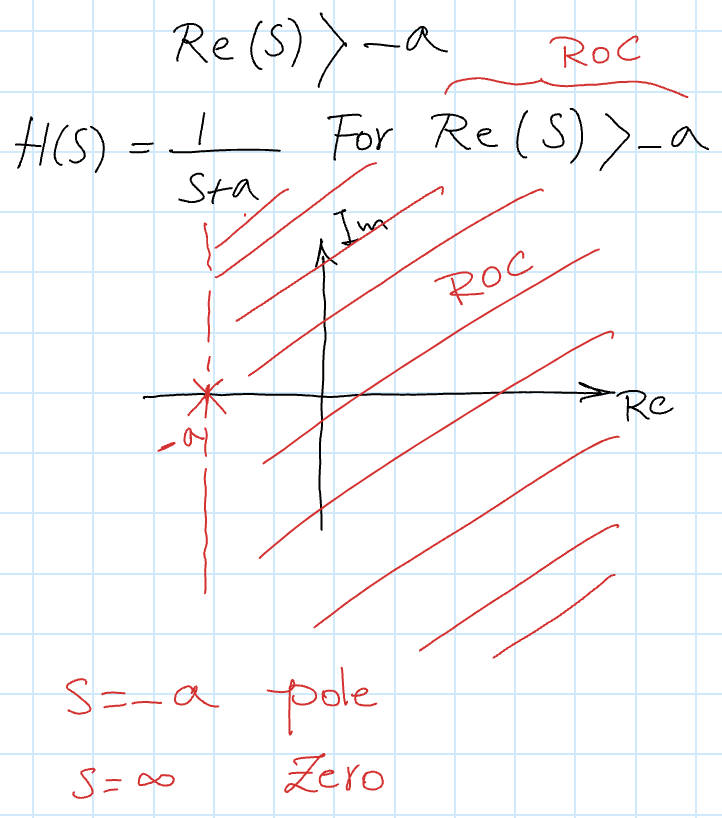 Re(S) > -a
RoC
H(S) = 1/(S+a) For Re(S) > -a
Im
ROC
Re
-a
S = -a pole
S = ∞ Zero